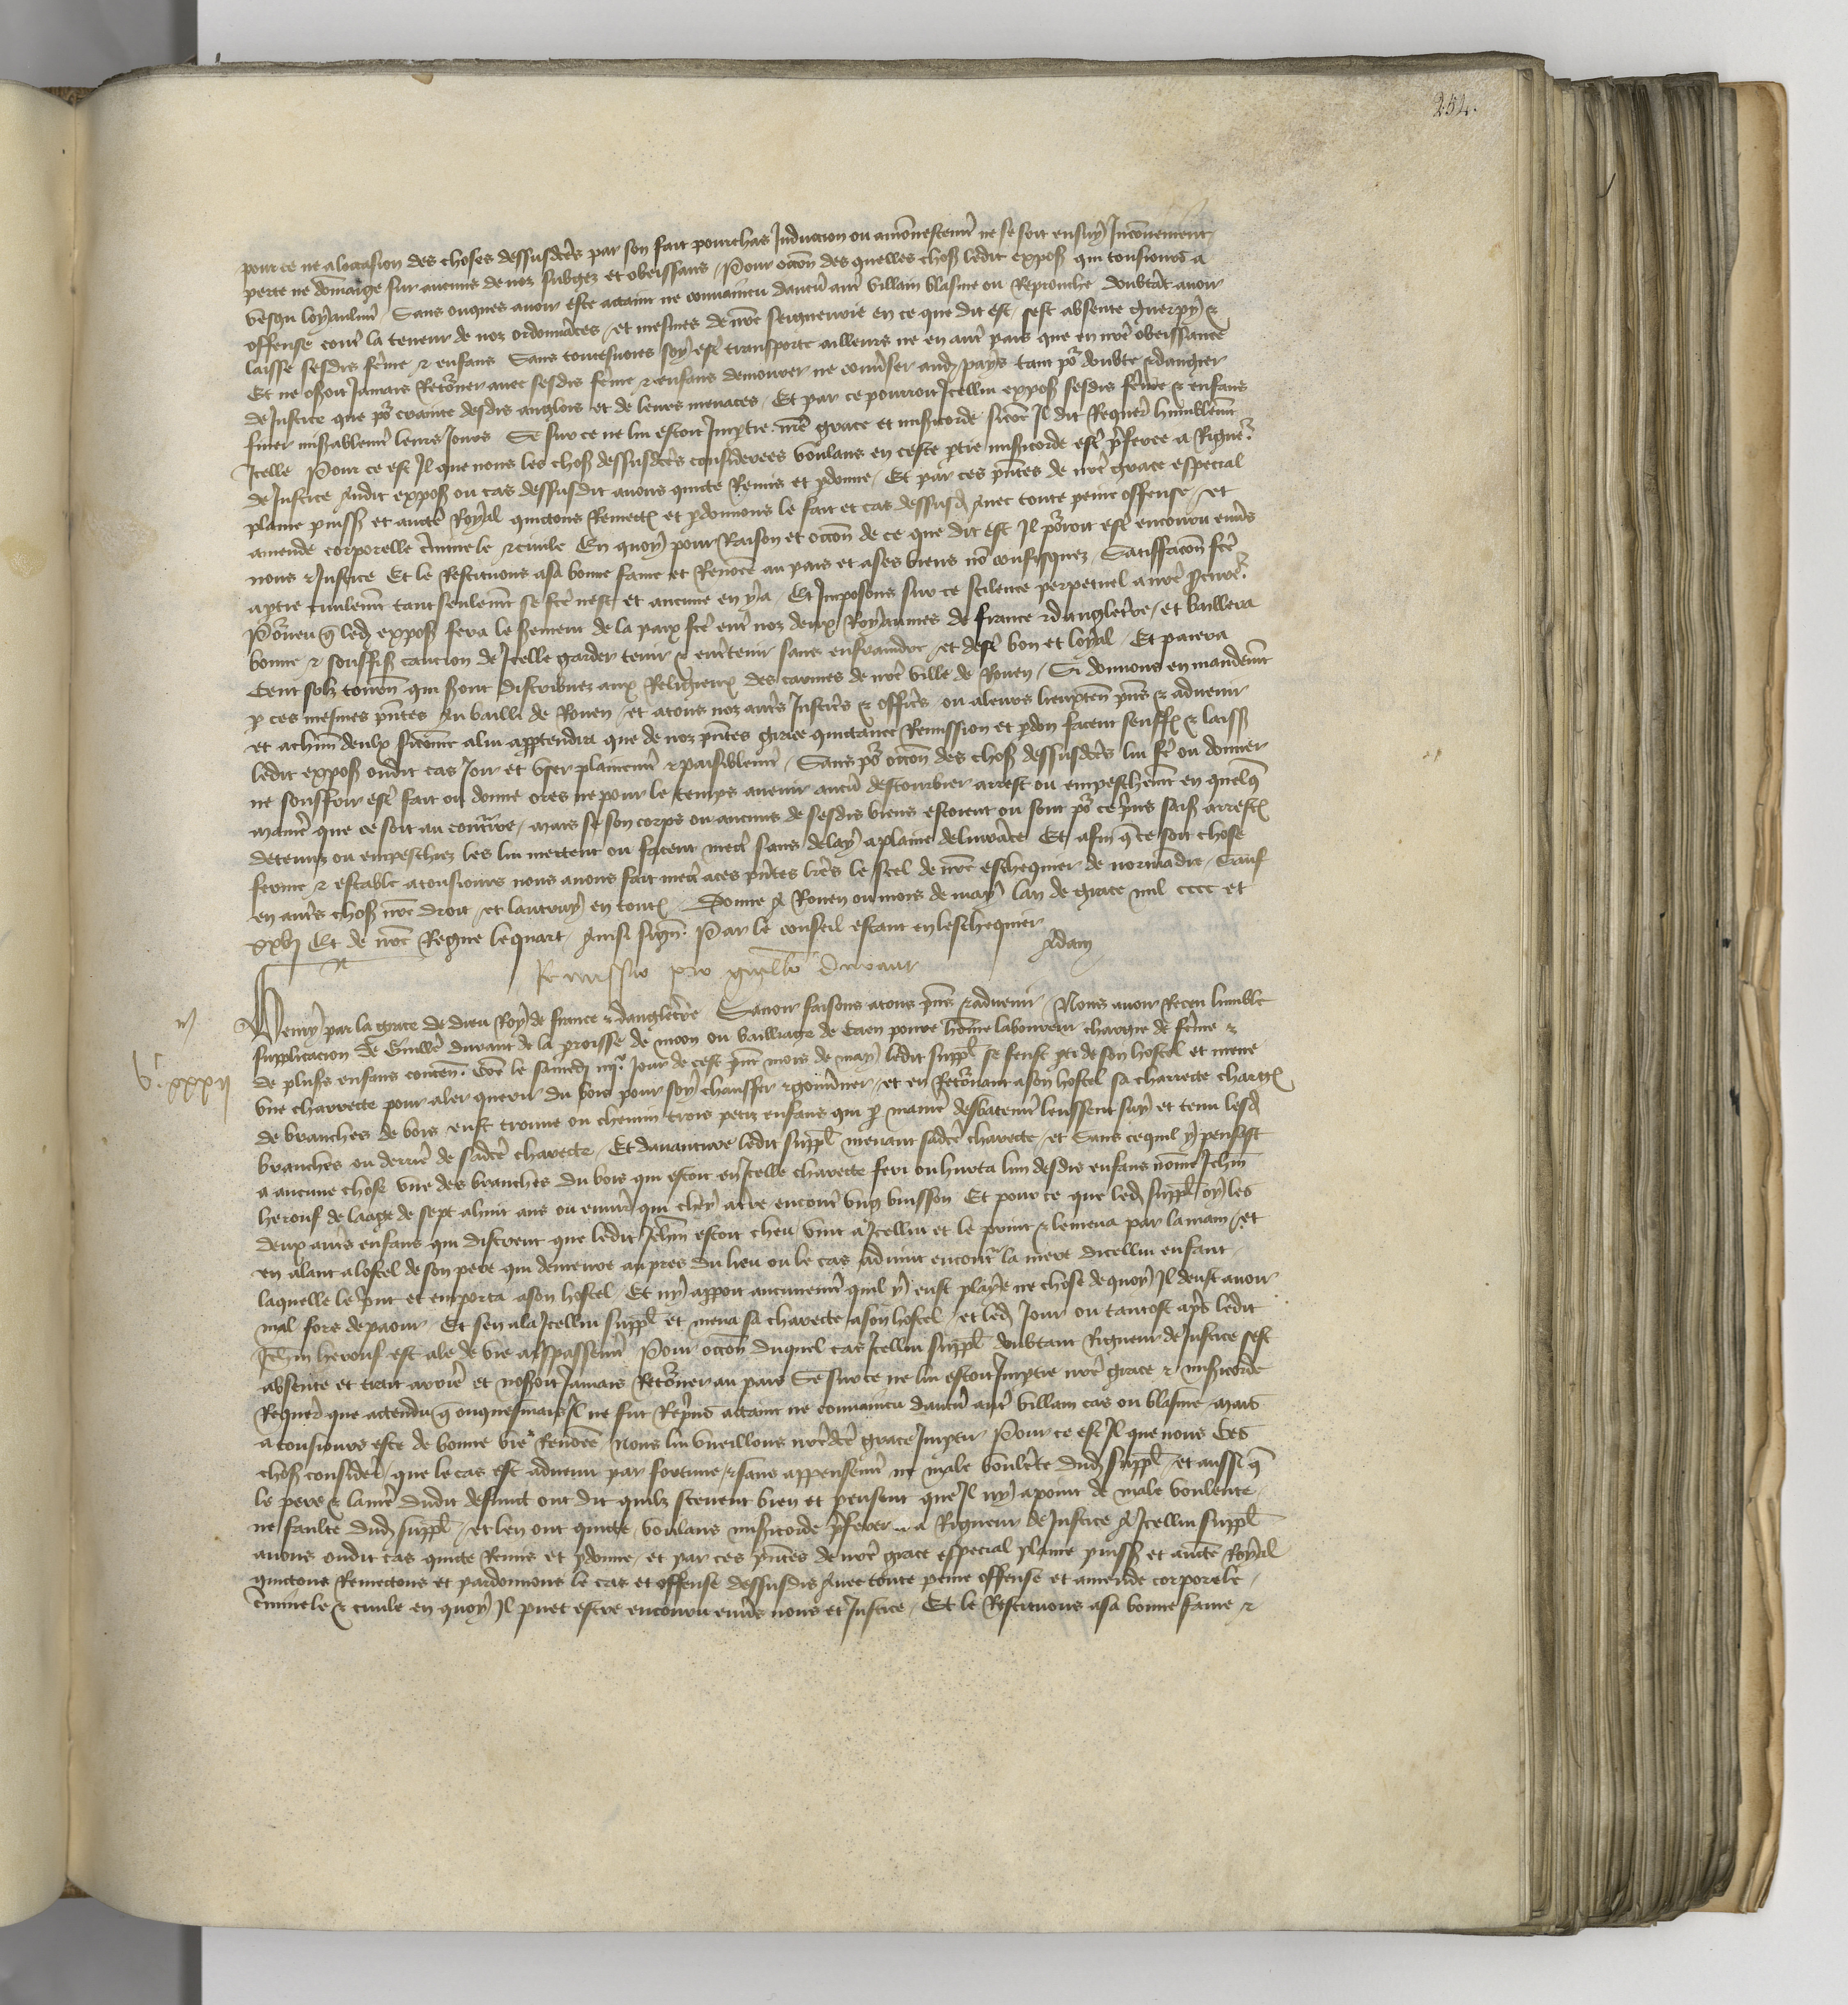 254.
pour ce ne a loccasion des choses dessusdictes par son fait pourchas Induction ou amonestement ne se soit ensuy Inconvenient
perte ne domaige sur aucuns de noz subgez et obeissans / Pour occon des quelles chos ledit expos qui tousiours a
vescu loyaulmt Sans onques avoir este actaint ne convaincu daucun autre villain blasme ou Reprouche doubtant avoir
offense contre la teneur de noz ordonnances / et mesmes de nre seigneurie en ce que dit est / sest absente guerpy &
laisse sesdis feme & enfans Sans toutesvoies soy estre transporte ailleurs ne en autre pais que en nre obeissance
Et ne oseroit Jamais Retorner avec sesdis feme & enfans demourer ne converser aud pays tant por doubte & dangier
de Justice que por crainte desdis anglois et de leurs menaces / Et par ce pourroit Icellui expos sesdis feme & enfans
finer miserablemt leurs Jours Se sur ce ne lui estoit Impartie nre grace et misericorde sicome Il dit Requerant humblemt
Icelle Pour ce est Il que nous les chos dessusdictes considerees voulans en ceste partie misericorde estre preferee a Rigueur
de Justice Audit expos ou cas dessusdit avons quicte Remis et pdonne / Et par ces pntes de nre grace especial
plaine puiss et aucte Royal quictons Remectons et pdonnons le fait et cas dessusd Avec toute peine offense / et
amende corporelle criminele & civile En quoy pour Raison et occon de ce que dit est Il porroit estre encouru envers
nous & Justice Et le Restituons a sa bonne fame et Renomee au pais et a ses biens no confisquez / Satisfacion fcte
a ptie civilemt tant seulemt se fcte nest et aucune en y a / Et Imposons sur ce scilence perpetuel a nre procureur
Porveu q led expos fera le serment de la paix fcte entre noz deux Royaumes de france & dangleterre / et baillera
bonne & souffis caucion de Icelle garder tenir & entretenir sans enfraindre / et destre bon et loyal / Et paiera
Cent solz tourn qui seront distribuez aux Religieux des carmes de nre ville de Rouen / Si donnons en mandemt
p ces mesmes pntes Au bailli de Rouen / et a tous noz autres Justiciers & officiers ou a leurs lieuxten pns & advenir
et a chun deulx sicomme a lui appartendra que de noz pntes grace quictance Remission et pdon facent seuffrent & laiss
ledit expos oudit cas Joir et user plainement & paisiblemt / Sans por occon des chos dessusdictes lui fe ou donner
ne souffrir estre fait ou donne ores ne pour le temps avenir aucun destourbier arrest ou empeschemt en quelq
maniere que ce soit au contraire / mais se son corps ou aucuns de sesdis biens estoient ou sont por ce prins saisis arrestez
detenuz ou empeschez les lui mettent ou facent mectre sans delay a plaine delivrance Et afin q ce soit chose
ferme & estable a tousiours nous avons fait mectre a ces pntes lres le scel de nre eschequier de normandie / Sauf
en autres chos nre droit / et lautruy en toutes Donne A Rouen ou mois de may lan de grace mil cccc et
xxvj Et de nre Regne le quart / Ainsi sign Par le conseil estant en leschequier
Adam
Remissio pro guillo Durant
Henry par la grace de dieu Roy de france & dangleterre Savoir faisons a tous pns & advenir / Nous avoir Receu humble
supplicacion de Guille durant de la proisse de moon ou bailliage de Caen povre homme laboureur chargie de feme &
vc. xxxij
de plusrs enfans conten Coe le samedi iiije Jour de cest pnt mois de may ledit suppl se feust pti de son hostel et mene
une charrecte pour aler querir du bois pour soy chauffer & gouverner / et en Retornant a son hostel sa charrecte chargee
de branches de bois eust trouve ou chemin trois petiz enfans qui p maniere desbatemt leussent suy et tenu lesd
branches ou derriere de sadicte charecte / Et davanture ledit suppl menant sadicte charecte / et Sans ce quil y pensast
a aucune chose une des branches du bois qui estoit en Icelle charecte feri ou hurta lun desdis enfans nomme Jehan
herouf de laage de sept a huit ans ou environ qui chey a terre encontre ung buisson Et pour ce que led suppl oy les
deux autres enfans qui disoient que ledit Jehan estoit cheu vint a Icellui et le print & lemena par la main / et
en alant a lostel de son pere qui demeure au pres du lieu ou le cas advint encontra la mere dicellui enfant
laquelle le prit et emporta a son hostel / Et ny apparoit aucunemt quil y eust playe ne chose de quoy Il deust avoir
mal fors de paour / Et sen ala Icellui suppl et mena sa charecte a son hostel / et led Jour ou tantost apres ledit
Jehan herouf est ale de vie a trespassemt Pour occon duquel cas Icellui suppl doubtant Rigueur de Justice sest
absente et trait arriere et noseroit Jamais Retorner au pais Se sur ce ne lui estoit Impartie nre grace & misericorde
Requerant que actendu q onquesmais Il ne fut Reprins actaint ne convaincu daucun autre villain cas ou blasme mais
a tousiours este de bonne vie & Renomee Nous lui vueillons nredcte grace Impartir Pour ce est Il que nous Ces
chos considerees / que le cas est advenu par fortune / & sans appensemt ne male voulente dud suppl / et aussi q
le pere & la mere dudit defunct ont dit quilz scevent bien et pensent que Il ny a point de male voulente
ne faulte dud suppl / et len ont quicte / voulans misericorde preferer a Rigueur de Justice A Icellui suppl
avons oudit cas quicte Remis et pdonne / et par ces pntes de nre grace especial plaine puiss et aucte Royal
quictons Remectons et pardonnons le cas et offense dessusdis Avec toute peine offense et amende corporele /
criminele & civile en quoy Il puet estre encouru envers nous et Justice / Et le Restituons a sa bonne fame &